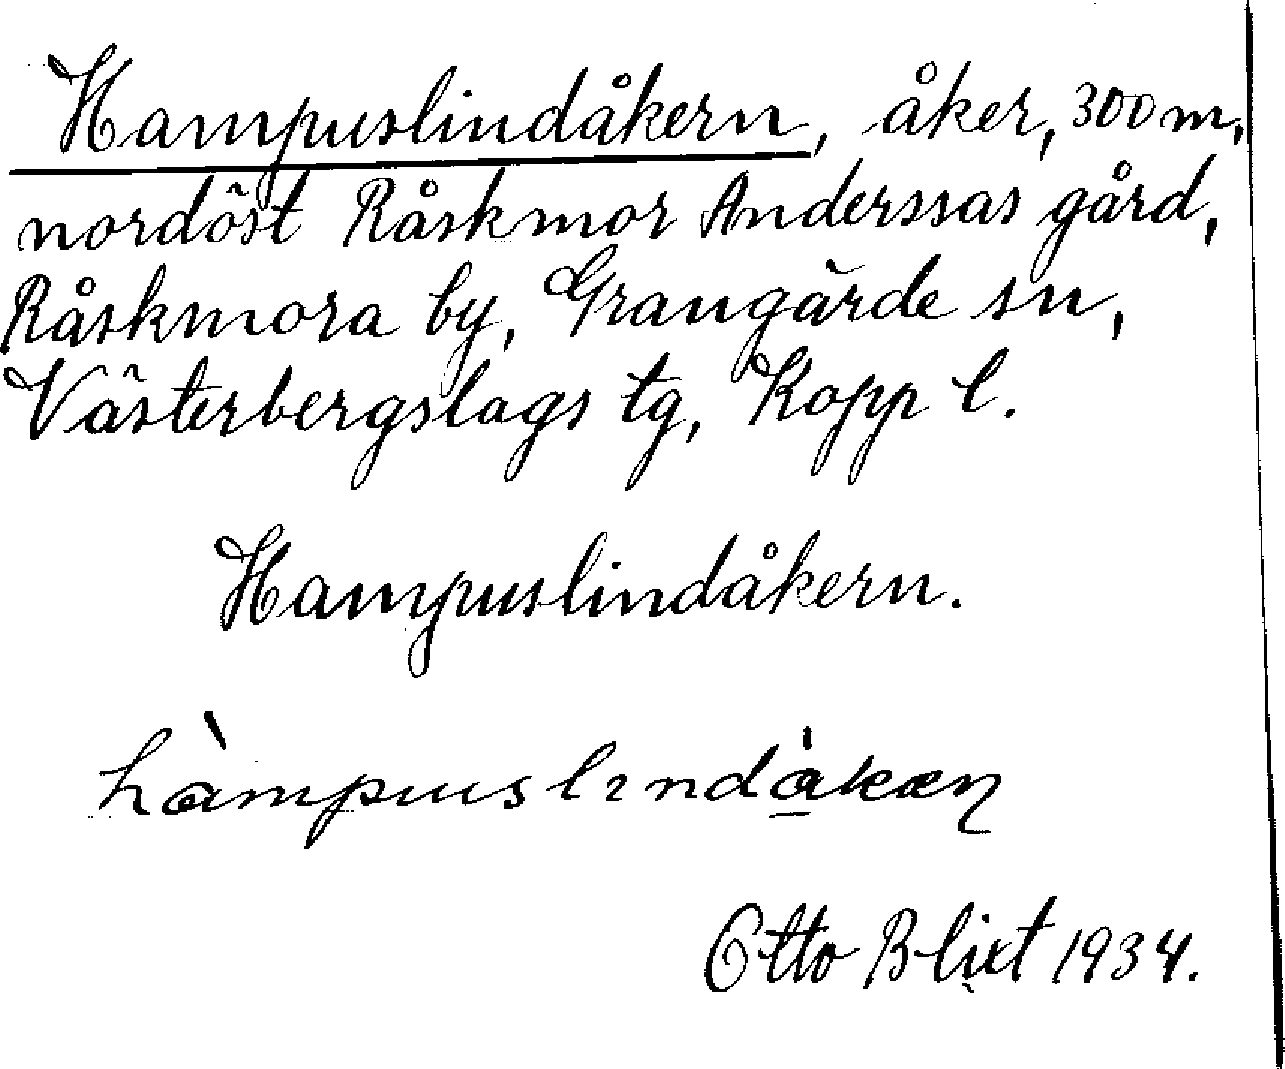 Hampuslindåkern, åker, 300 m,
nordöst Råskmor Anderssas gård,
Råskmora by, Grangärde sn,
Västerbergslags tg, Kopp l.
Hampuslindåkern.
hàmpuslındå̀kæn
Otto Blixt 1934.